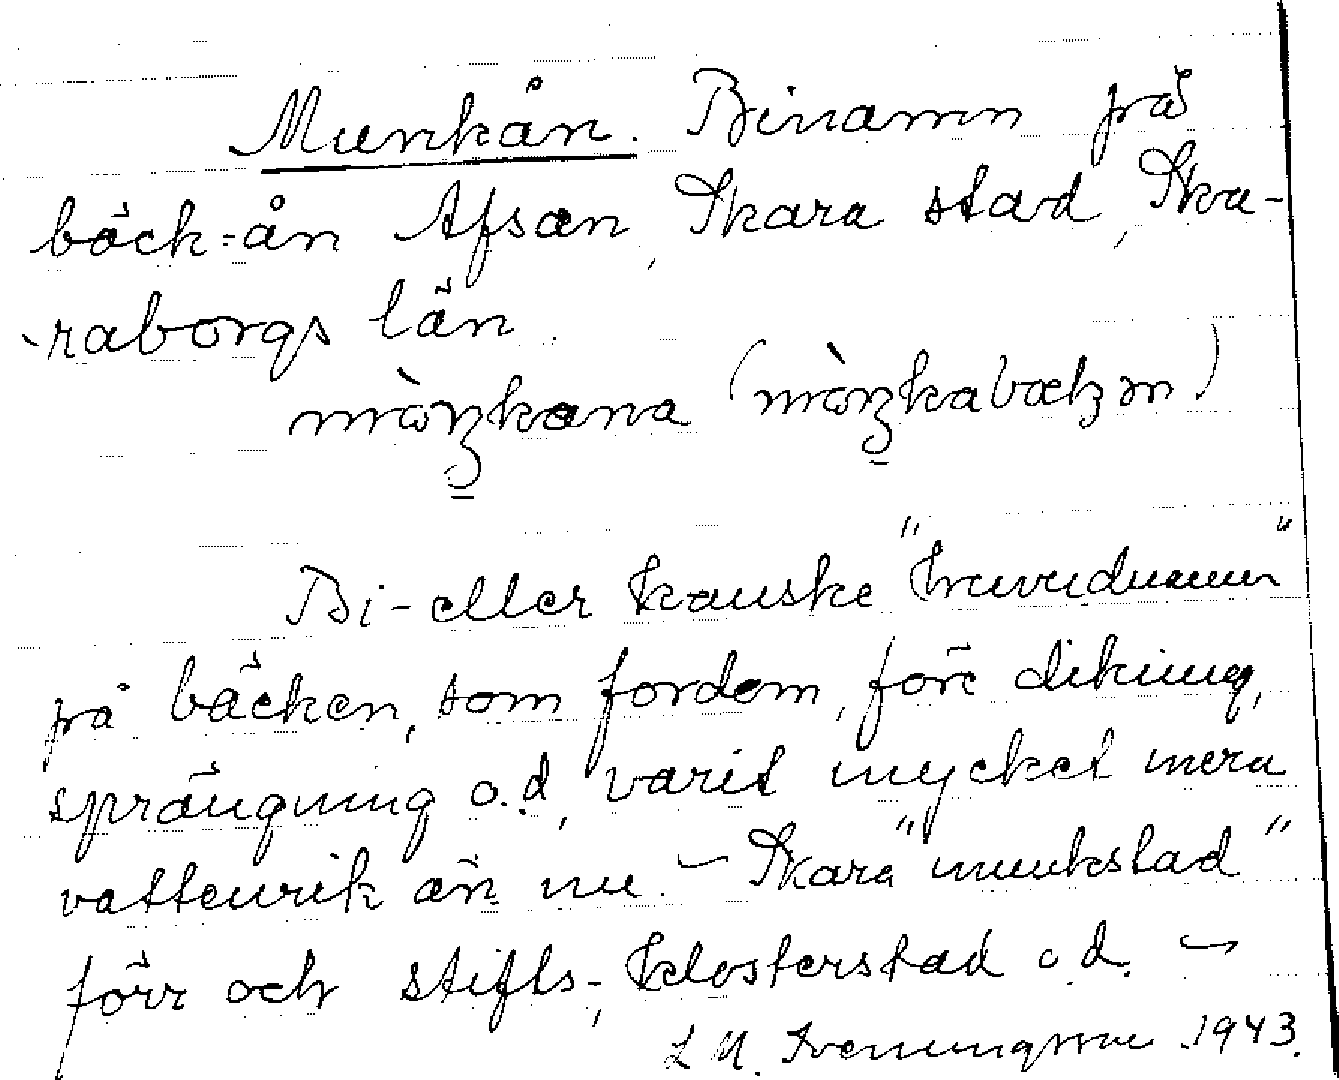 Munkån. Binamn på
bäck-ån Afsan, Skara stad, Ska-
raborgs län.
(
)
Bi- eller kanske "huvudnamn"
på bäcken, som fordom, före dikning,
sprängning o.d, varit mycket mera
vattenrik än nu. - Skara "munkstad"
förr och stifts-, klosterstad o d. -
1943.